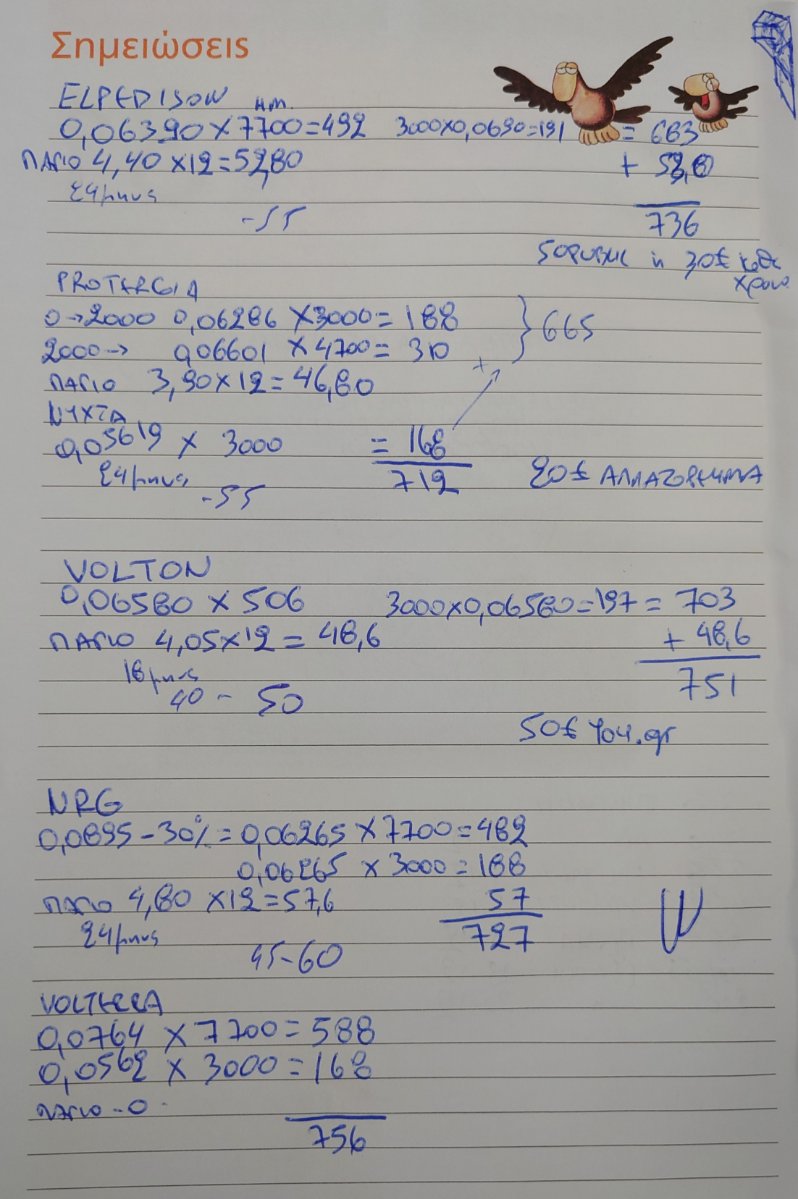 Σημειώσεις
ELPEDISON ΗΜ.
0,06390 x 7700 = 492 3000x0,0690=191 = 683
ΠΑΓΙΟ 4,40 x12 = 52,80 + 52,8
24μηνς
-55 736
30€ κάθε
χρονο
PROTERGIA
0→2000 0,06286 x 3000 = 188
} 665
2000→ 0,06601 x 4700 = 310
ΠΑΓΙΟ 3,90 x 12 = 46,80 +
ΝΥΧΤΑ
0,05619 x 3000 = 168
24μηνς 712 20€
-55
VOLTON
0,06580 x 506 3000x0,06580=197 = 703
ΠΑΓΙΟ 4,05x12 = 48,6 + 48,6
18μηνς 751
40 - 50
50€ You.gr
NRG
0,0895 - 30% = 0,06265 x 7700 = 482
0,06265 x 3000 = 188
ΠΑΓΙΟ 4,80 x12 = 57,6 57
24μηνς 727
45-60
VOLTERRA
0,0764 x 7700 = 588
0,0562 x 3000 = 168
ΠΑΓΙΟ - 0 -
756